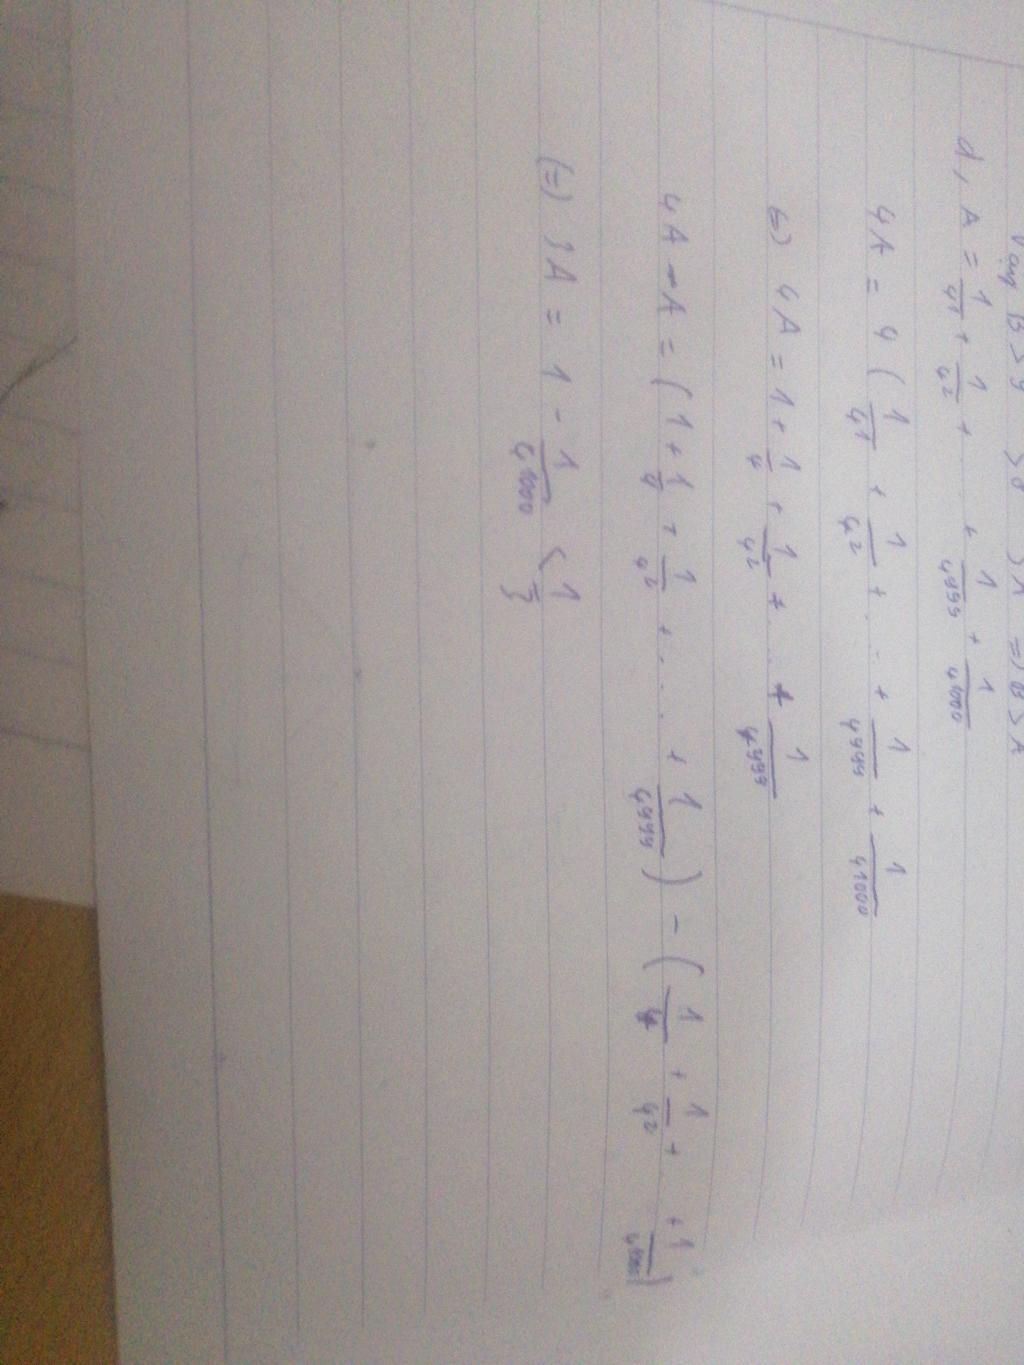 Vậy B > 4 3B 3A => B > A
d, A = 1/4^1 + 1/4^2 + + 1/4^999 + 1/4^1000
4A = 4 ( 1/4^1 + 1/4^2 + ... + 1/4^999 + 1/4^1000
(=) 4A = 1 + 1/4 + 1/4^2 + ... + 1/4^999
4A - A = ( 1 + 1/4 + 1/4^2 + ... + 1/4^999 ) - ( 1/4 + 1/4^2 + + 1/4^1000 )
(=) 3A = 1 - 1/4^1000 < 1/3